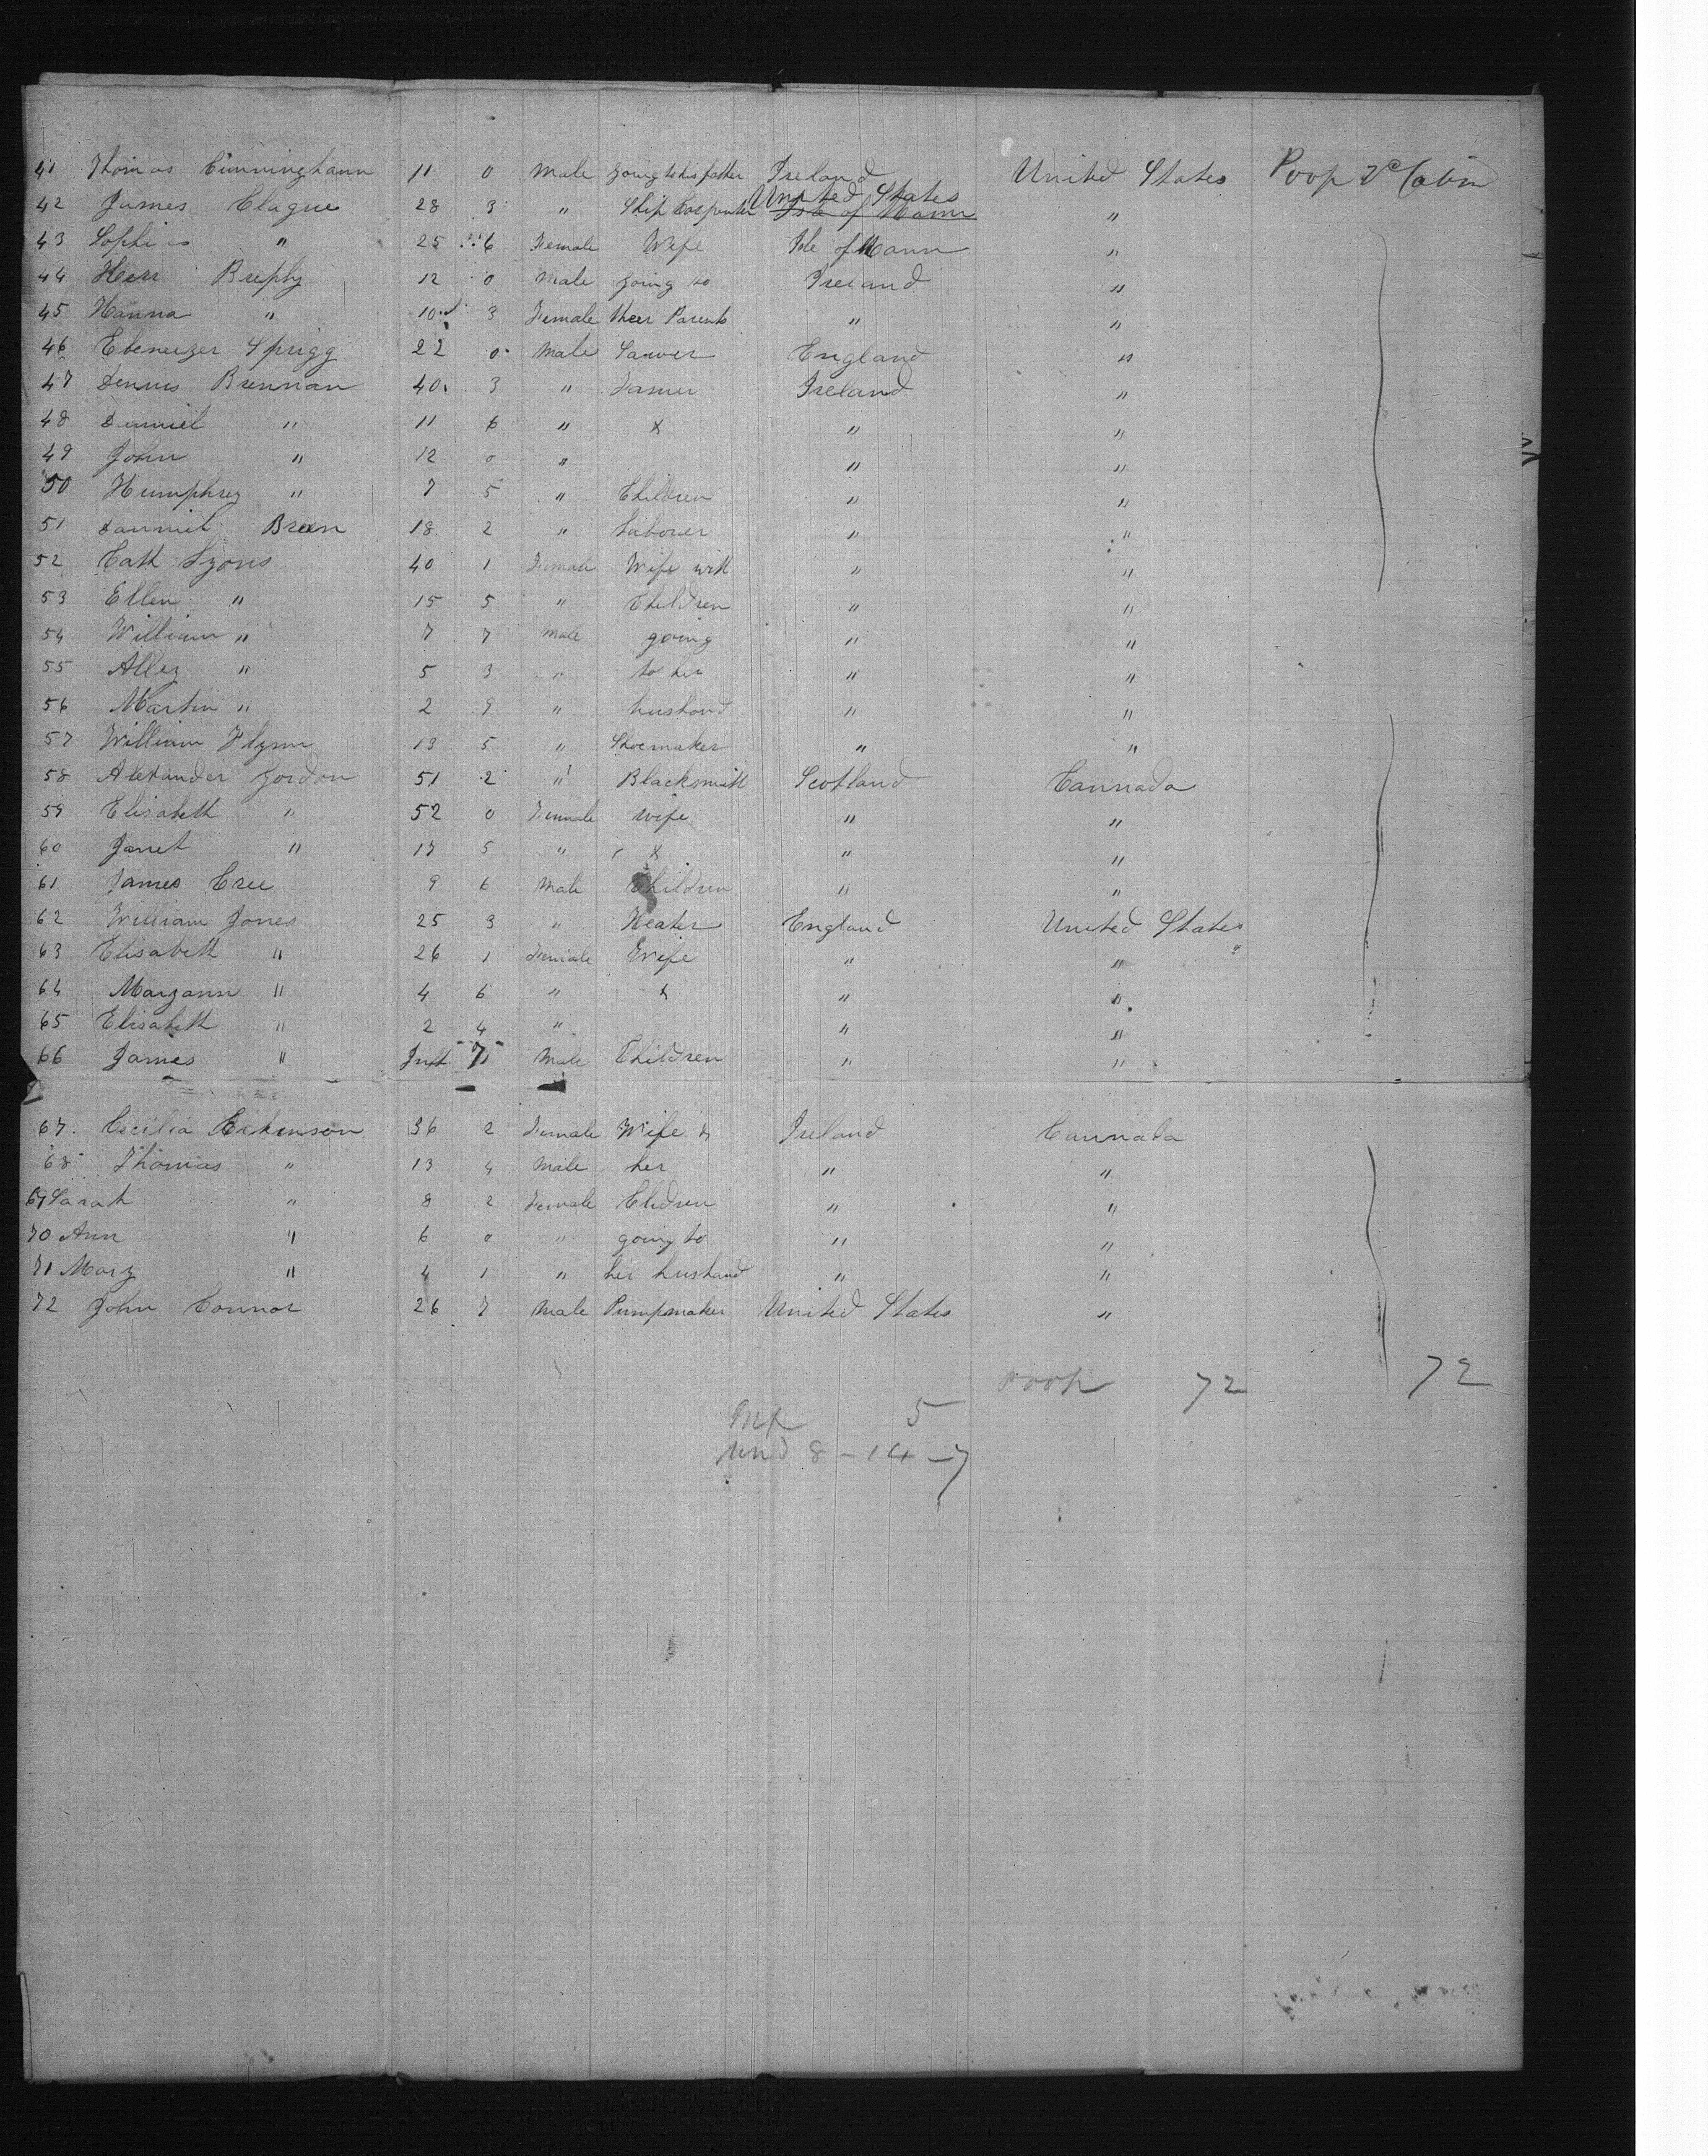 41 Thomas Cunninghann 11 0 Male going to his father Ireland United States Poop & Cabin
United States
42 James Clague 28 3 " Ship Carpenter Isle of Mann "
43 Sophia " 25 6 Female Wife Isle of Mann "
44 Brephy 12 0 Male going to Ireland "
45 Hanna " 10 3 Female theer Parents " "
46 Ebeneezer Sprigg 22 0 Male Sawer England "
47 Dennis Brennan 40 3 " Famer Ireland "
48 Danniel " 11 6 " & " "
49 John " 12 0 " " "
50 Humphrey " 7 5 " Children " "
51 Danniel Breen 18 2 " Labourer " "
52 Cath Lyons 40 1 Female Wife with " "
53 Ellen " 15 5 " Children " "
54 William " 7 7 Male going " "
55 Alley " 5 3 " to her " "
56 Martin " 2 9 " husband " "
57 William Flynn 13 5 " Shoemaker " "
58 Alexander Gordon 51 2 " Blacksmith Scotland Cannada
59 Elisabeth " 52 0 Female wife " "
60 Janet " 17 5 " & " "
61 James Cree 9 6 Male Children " "
62 William Jones 25 3 " Heater England United States
63 Elisabeth " 26 1 Female Wife " "
64 Maryann " 4 6 " & " "
65 Elisabeth " 2 4 " " "
66 James " Inft 7 Male Children " "
67. Cecilia 36 2 Female Wife & Ireland Cannada
68 Thomas " 13 4 Male her " "
69 Sarah " 8 2 Female Clidren " "
70 Ann " 6 0 " going to " "
71 Mary " 4 1 " her husband " "
72 John Connor 26 7 Male Pumpmaker United States "
Poop 72 72
Inf 5
und 8 - 14 - 7